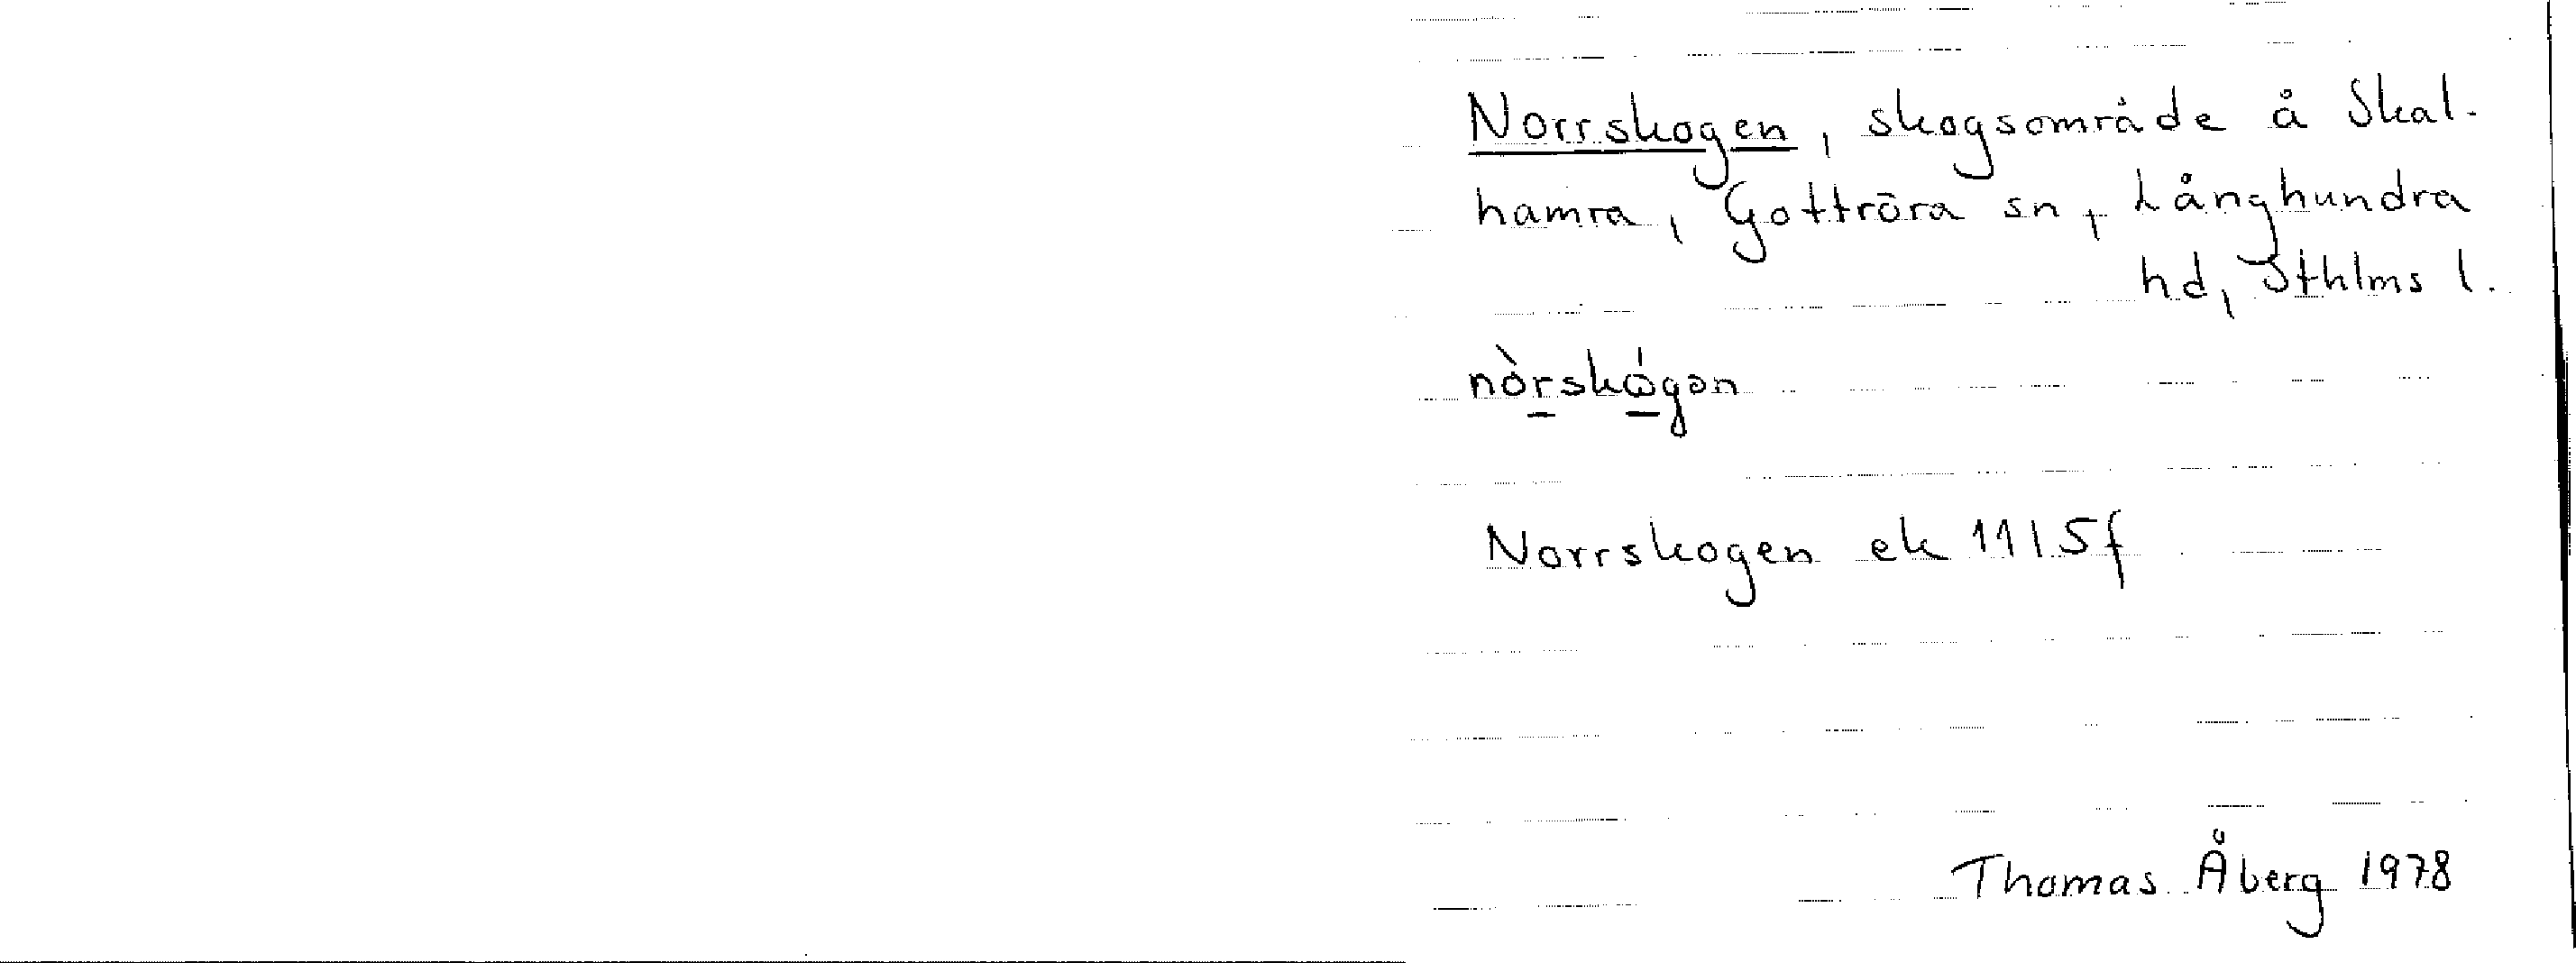 Norrskogen, skogsområde å Skal-
hamra, Gottröra sn, Långhundra
hd, Sthlms l.
nòrskógən
Norrskogen ek 11I5f
Thomas Åberg 1978